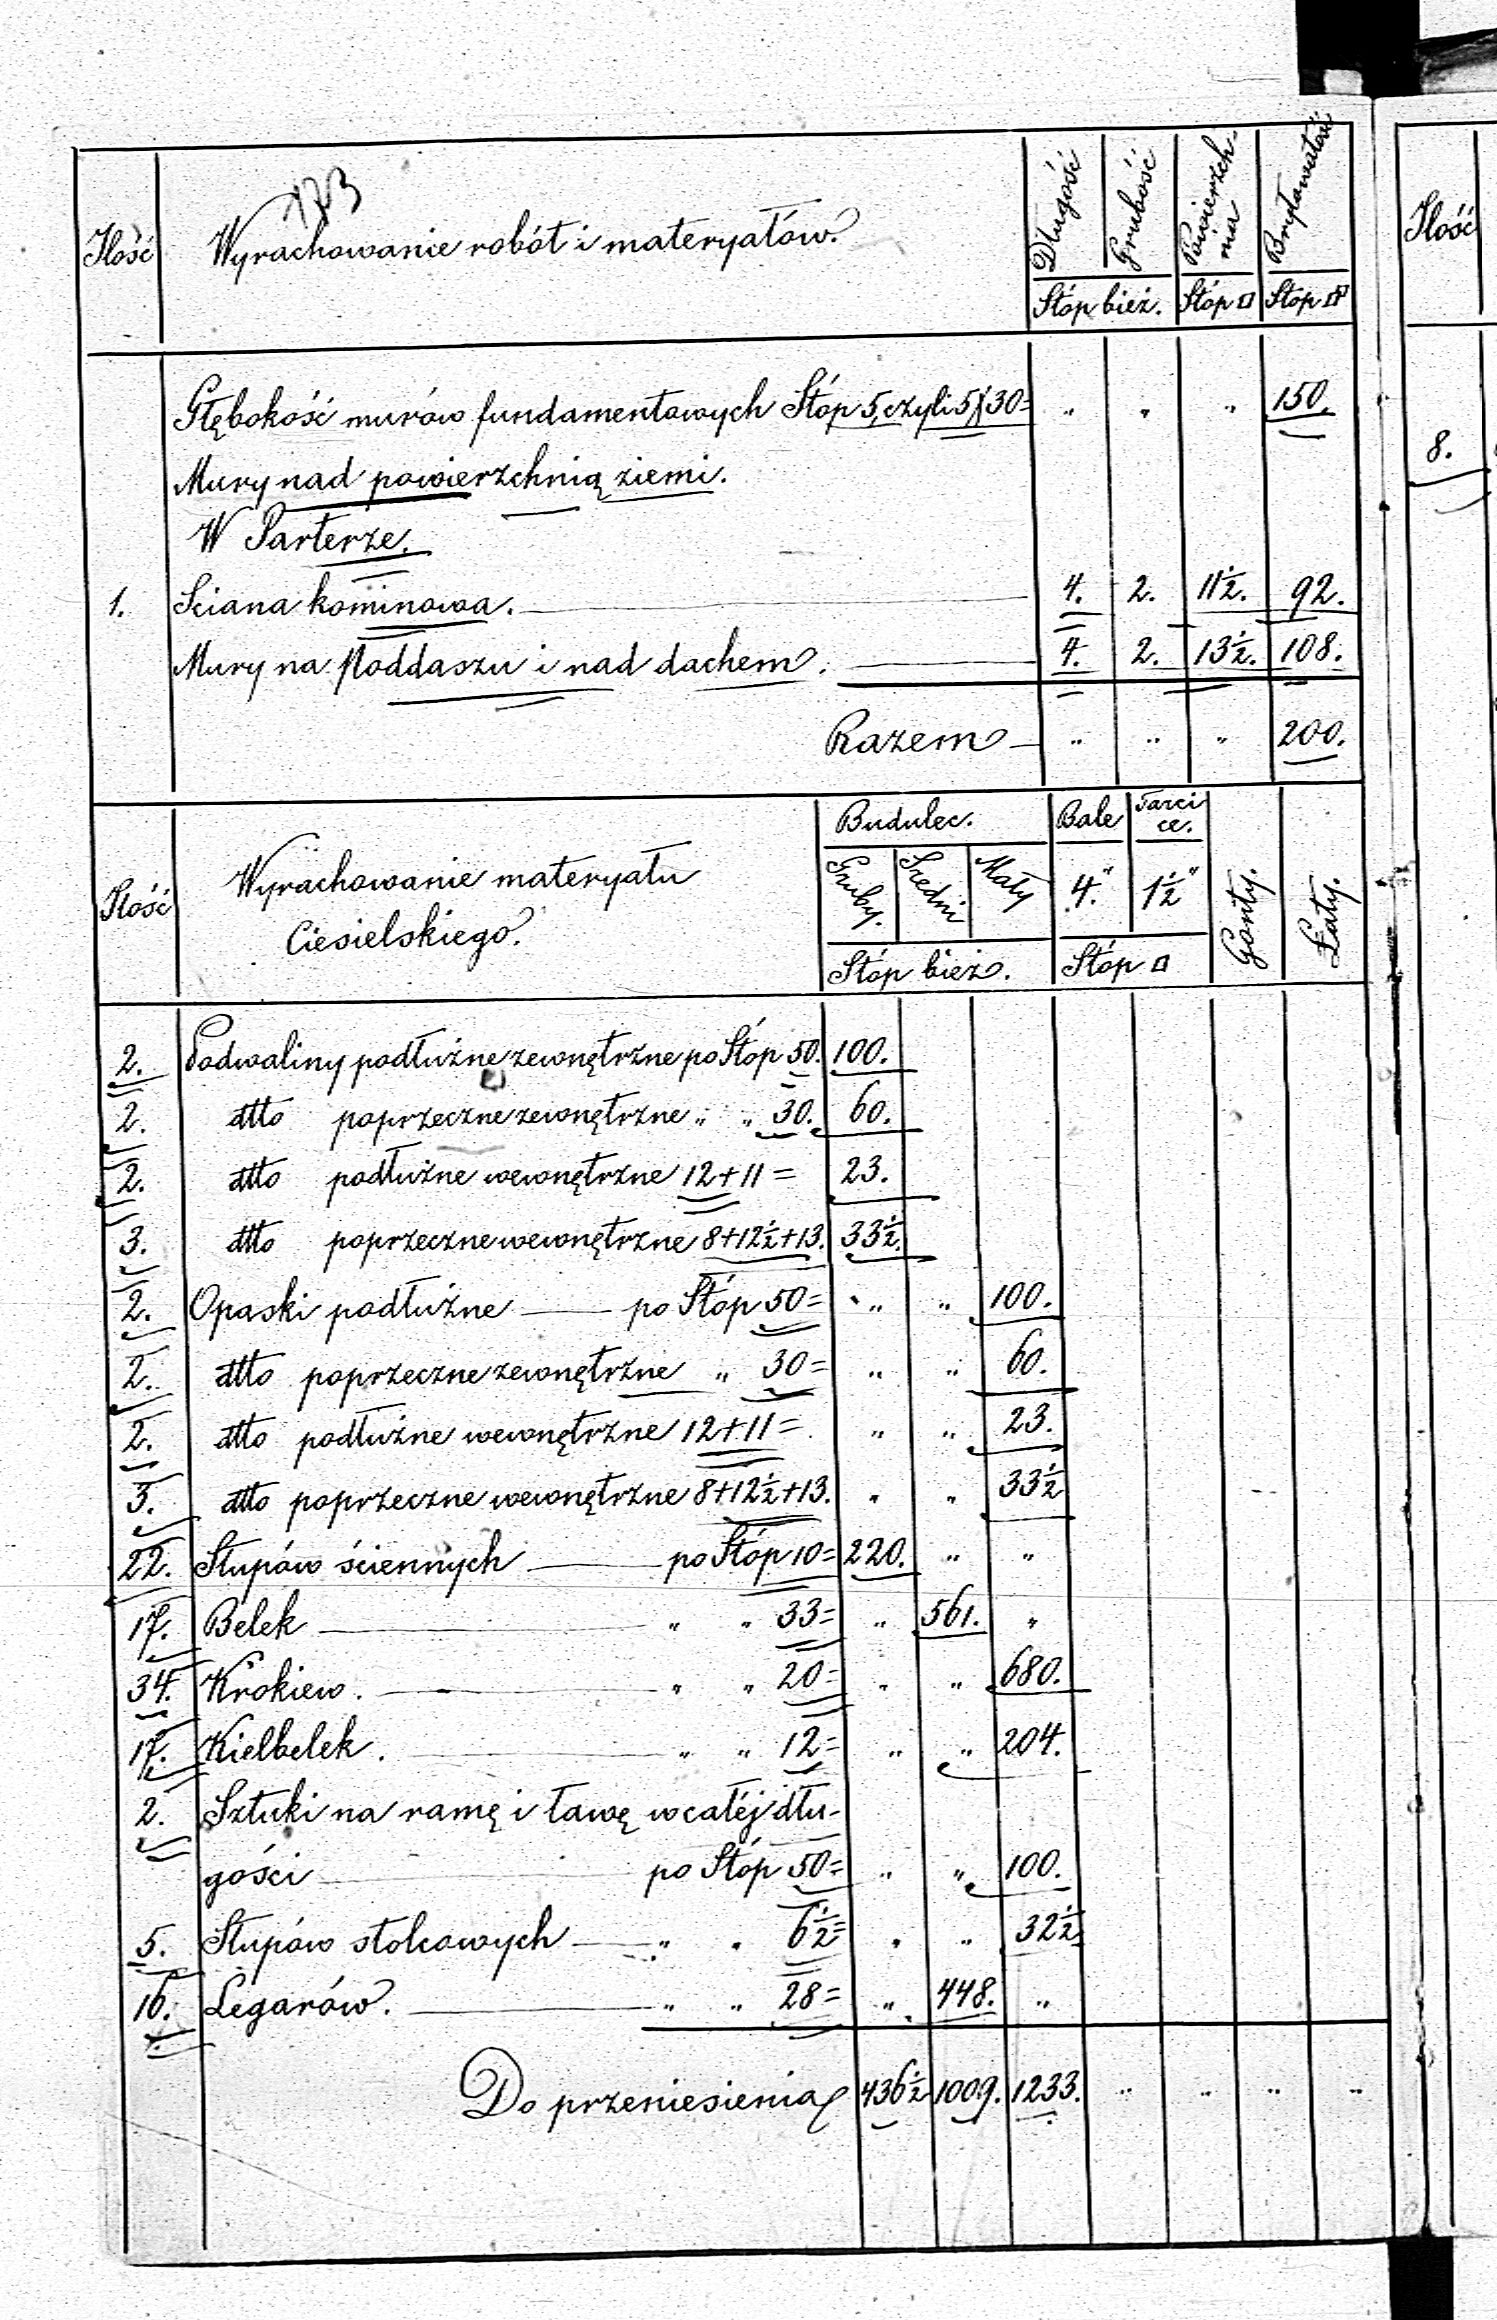 123
Ilość Wyrachowanie robót i materyałów. Długość Grubość Powierzchnia Bryłowatość
Stóp bież. Stóp □ Stóp
Głębokość murów fundamentowych Stóp 5, czyli 5 X 30 = " " " 150.
Mury nad powierzchnią ziemi.
W Parterze.
1. Sciana kominowa. 4. 2. 11½. 92.
Mury na Poddaszu i nad dachem. 4. 2. 13½. 108.
Razem " " " 200.
Ilość Wyrachowanie materyału Ciesielskiego. Budulec. Bale Tarcice. Gonty. Łaty.
Gruby. Sredni Mały 4." 1½"
Stóp bież. Stóp □
2. Podwaliny podłużne zewnętrzne po Stóp 50. 100.
2. dtto poprzeczne zewnętrzne " " 30. 60.
2. dtto podłużne wewnętrzne 12+11 = 23.
3. dtto poprzeczne wewnętrzne 8+12½+13. 33½.
2. Opaski podłużne po Stóp 50 = " " 100.
2. dtto poprzeczne zewnętrzne " 30 = " " 60.
2. dtto podłużne wewnętrzne 12+11 = " " 23.
3. dtto poprzeczne wewnętrzne 8+12½+13. " " 33½
22. Słupów ściennych po Stóp 10 = 220. " "
17. Belek " " 33 = " 561. "
34. Krokiew. " " 20 = " " 680.
17. Kielbelek. " " 12 = " " 204.
2. Sztuki na ramę i ławę w całéj dłu-
gości po Stóp 50 = " " 100.
5. Słupów stolcowych " " 6½ = " " 32½
16. Legarów. " " 28 = " 448. "
Do przeniesienia 436½ 1009. 1233. " " " "
Ilość
8.